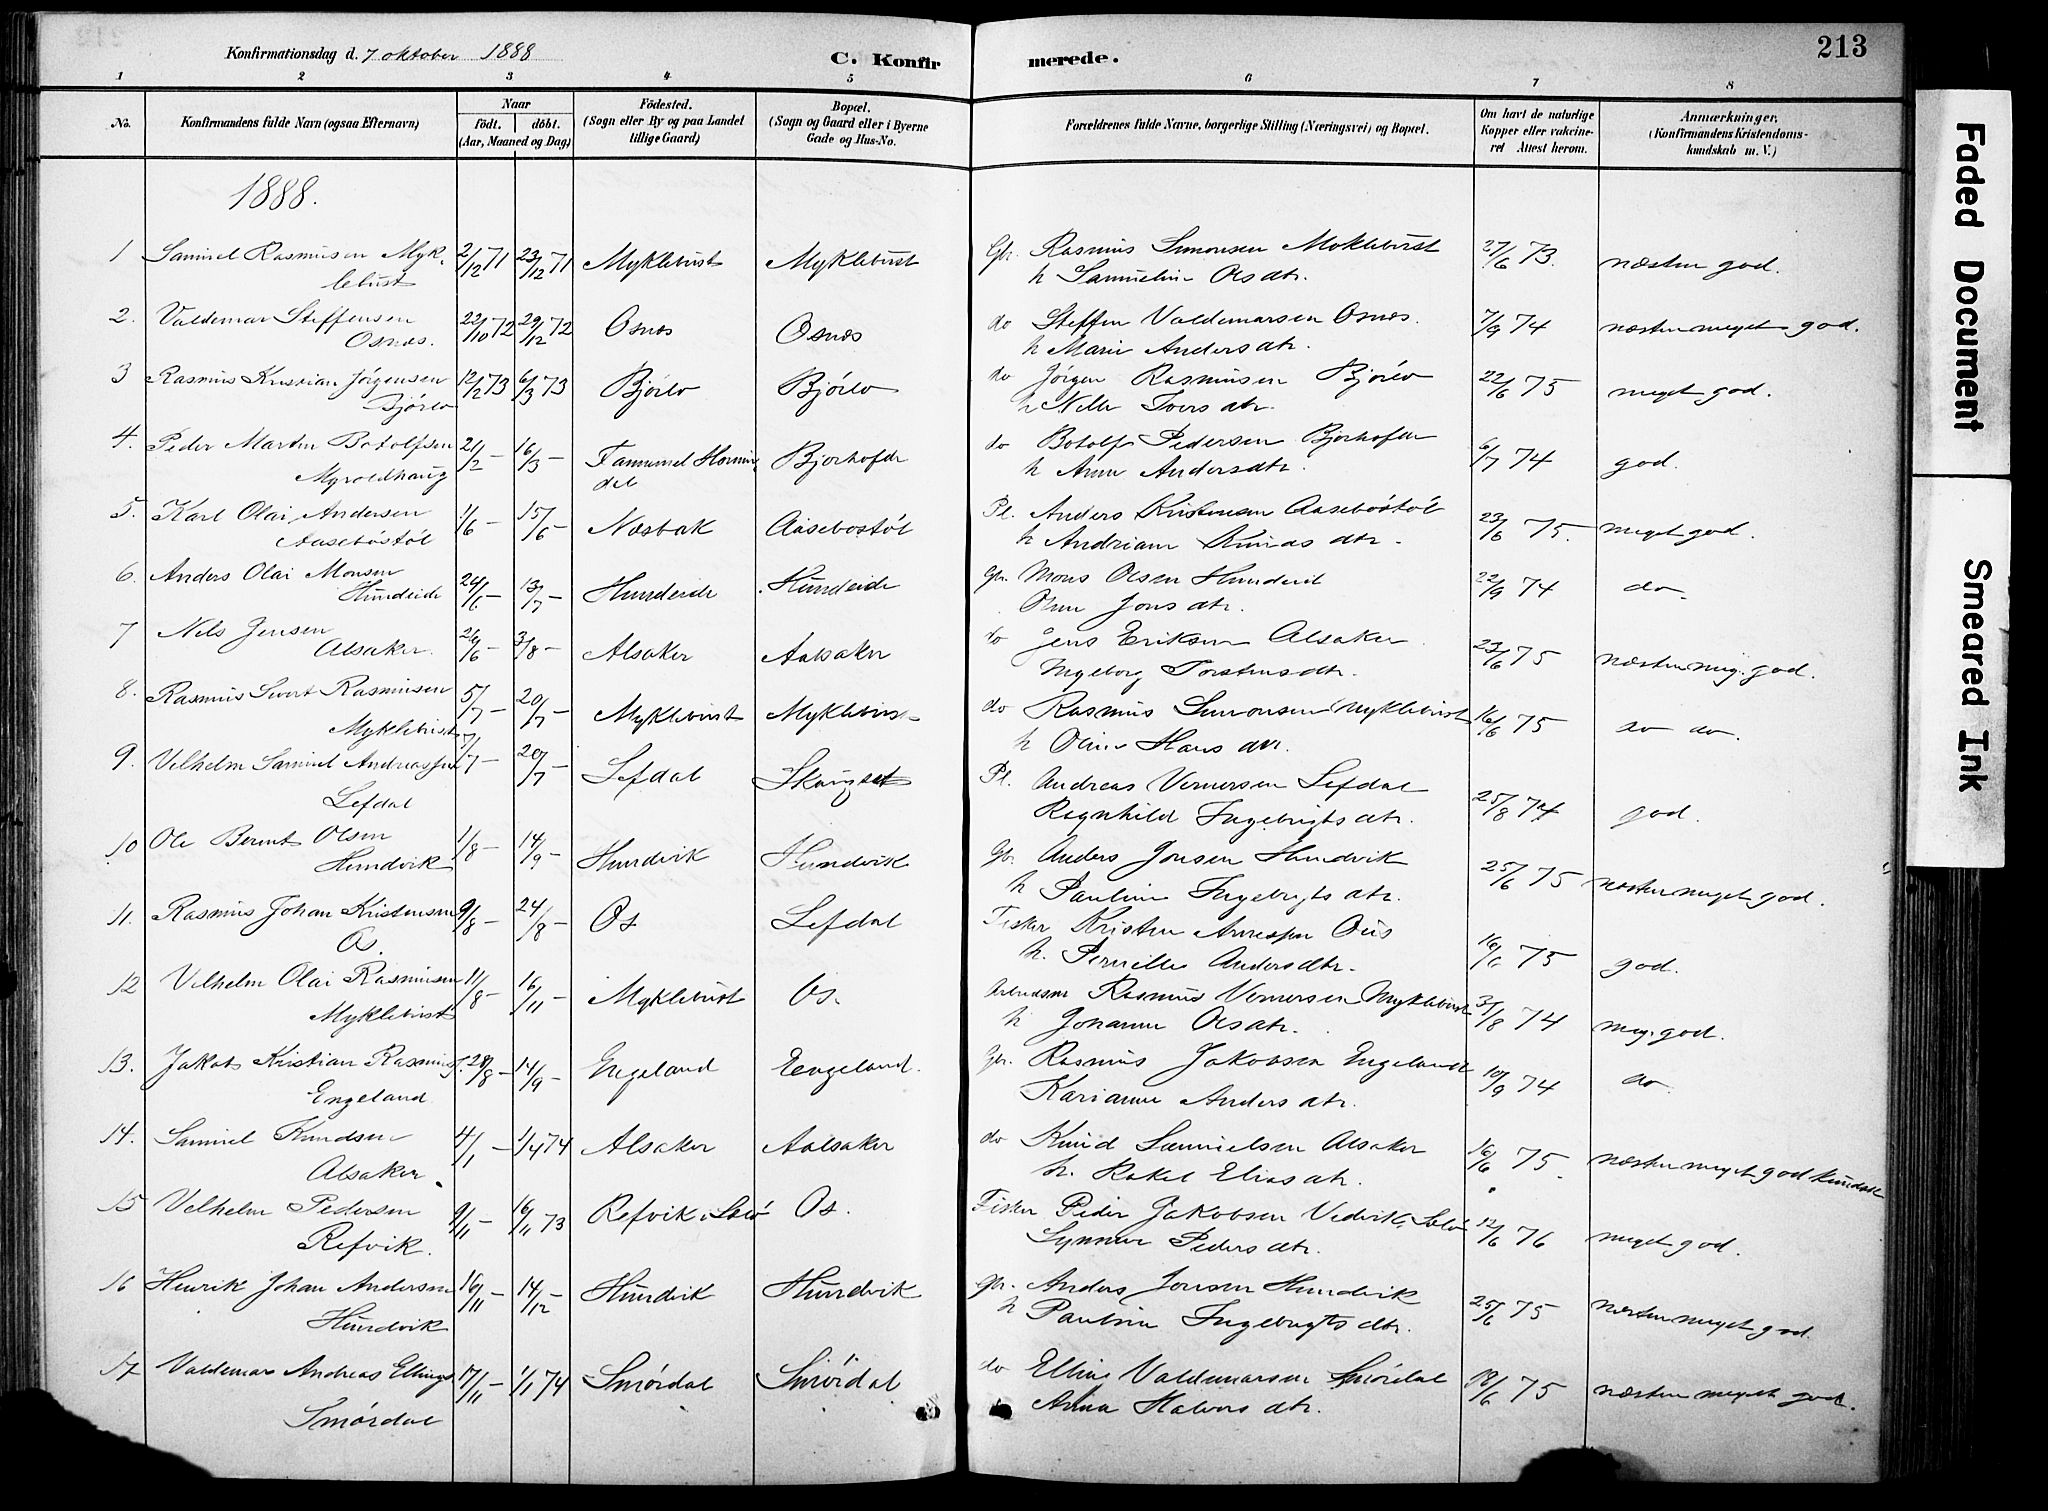 Konfirmationsdag d. 7 oktober 1888
C. Konfir
merede.
213
1 2 3 4 5 6 7 8
No.
Konfirmandens fulde Navn (ogsaa Efternavn)
Naar
födt. döbt.
(Aar, Maaned og Dag)
Födested.
(Sogn eller By og paa Landet
tillige Gaard)
Bopæl.
(Sogn og Gaard eller i Byerne
Gade og Hus-No.
Forældrenes fulde Navne, borgerlige Stilling (Næringsvei) og Bopæl.
Om havt de naturlige
Kopper eller vakcine-
ret Attest herom.
Anmærkninger.
(Konfirmandens Kristendoms-
kundskab m. V.)
1888.
1 Samuel Rasmusen Myk- 21/12 71 23/12 71 Myklebust Myklebust Gbr. Rasmus Simonsen Myklebust 27/6 73. næsten god.
lebust h Samueline Olsdtr.
2. Valdemar Steffensen 22/10 72 29/12 72 Osnæs Osnæs do Steffen Valdemarsen Osnæs. 7/9 74 næsten meget god.
Osnæs. h Marie Andersdtr.
3 Rasmus Kristian Jörgensen 12/2 73 6/3 73 Bjørlo Bjørlo do Jörgen Rasmusen Bjørlo 22/6 75 meget god.
Bjørlo h Nille Iversdtr.
4. Peder Martin Botolfsen 21/2 – 16/3 – Hornin- Bjorhofde do Botolf Pedersen Bjorhofde 6/7 74 god.
Myroldhaug dal h Anne Andersdtr.
5. Karl Olai Andersen 1/6 – 15/6 – Næsbak Aasebostøl Pl. Anders Kristensen Aasebøstøl 23/6 75. meget god.
Aasebøstøl h Andriane Knudsdtr.
6. Anders Olai Monsen 24/6 – 13/7 – Hundeide Hundeide Gbr. Mons Olsen Hundeid 22/9 74 do.
Hundeide Jonsdtr.
7 Nils Jensen 26/6 – 3/8 – Alsaker Aalsaker do Jens Eriksen Alsaker 23/6 75 næsten meg. god.
Alsaker. Ingeborg Torstensdtr.
8. Rasmus Sivert Rasmusen 5/7 – 20/7 – Myklebust Myklebust do Rasmus Simonsen Myklebust 16/6 75 do do.
Myklebust h Oline Hansdtr.
9. Velhelm Samuel Andreassen 7/7 – 20/7 – Lefdal Pl. Andreas Vernersen Lefdal 25/8 74 god.
Lefdal Ragnhild Ingebrigtsdtr.
10 Ole Bernt Olsen 1/8 – 14/9 – Hundvik Hundvik Gb. Anders Jonsen Hundvik 25/6 75 næsten meget god.
Hundvik h Pauline Ingebrigtsdtr.
11. Rasmus Johan Kristensen 9/8 – 24/8 – Os Lefdal Fisker Kristen Oüs 16/6 75 god.
Os. h. Pernille Andersdtr.
12 Velhelm Olai Rasmusen 11/8 – 16/11 – Myklebust Os. Arbeidsm Rasmus Vernersen Myklebust 31/8 74 meg. god.
Myklebust h Johanne Olsdtr.
13. Jakob Kristian Rasmus. 28/8 – 14/9 – Engeland Eengeland. Gbr. Rasmus Jakobsen Engeland 10/9 74 do
Engeland Karianne Andersdtr.
14. Samuel Knudsen 4/1 – 1/4 74 Alsaker Aalsaker do Knud Samuelsen Alsaker 16/6 75. næsten meget god kundsk
Alsaker. h. Rakel Eliasdtr.
15 Velhelm Pedersen 9/11 – 16/11 73 Refvik Os. Fisker Peder Jakobsen 12/6 76 meget god.
Refvik. Synneve Pedersdtr.
16 Henrik Johan Andersen 16/11 – 14/12 – Hundvik Hundvik Gbr. Anders Jonsen Hundvik 25/6 75 næsten meget god.
Hundvik h Pauline Ingebrigtsdtr.
17 Valdemar Andreas Ellings 17/11 – 1/1 74 Smørdal Smørdal do Elling Valdemarsen Smørdal 19/6 75 næsten meget god.
Smørdal Anna Halvorsdtr.
Faded Document
Smeared Ink